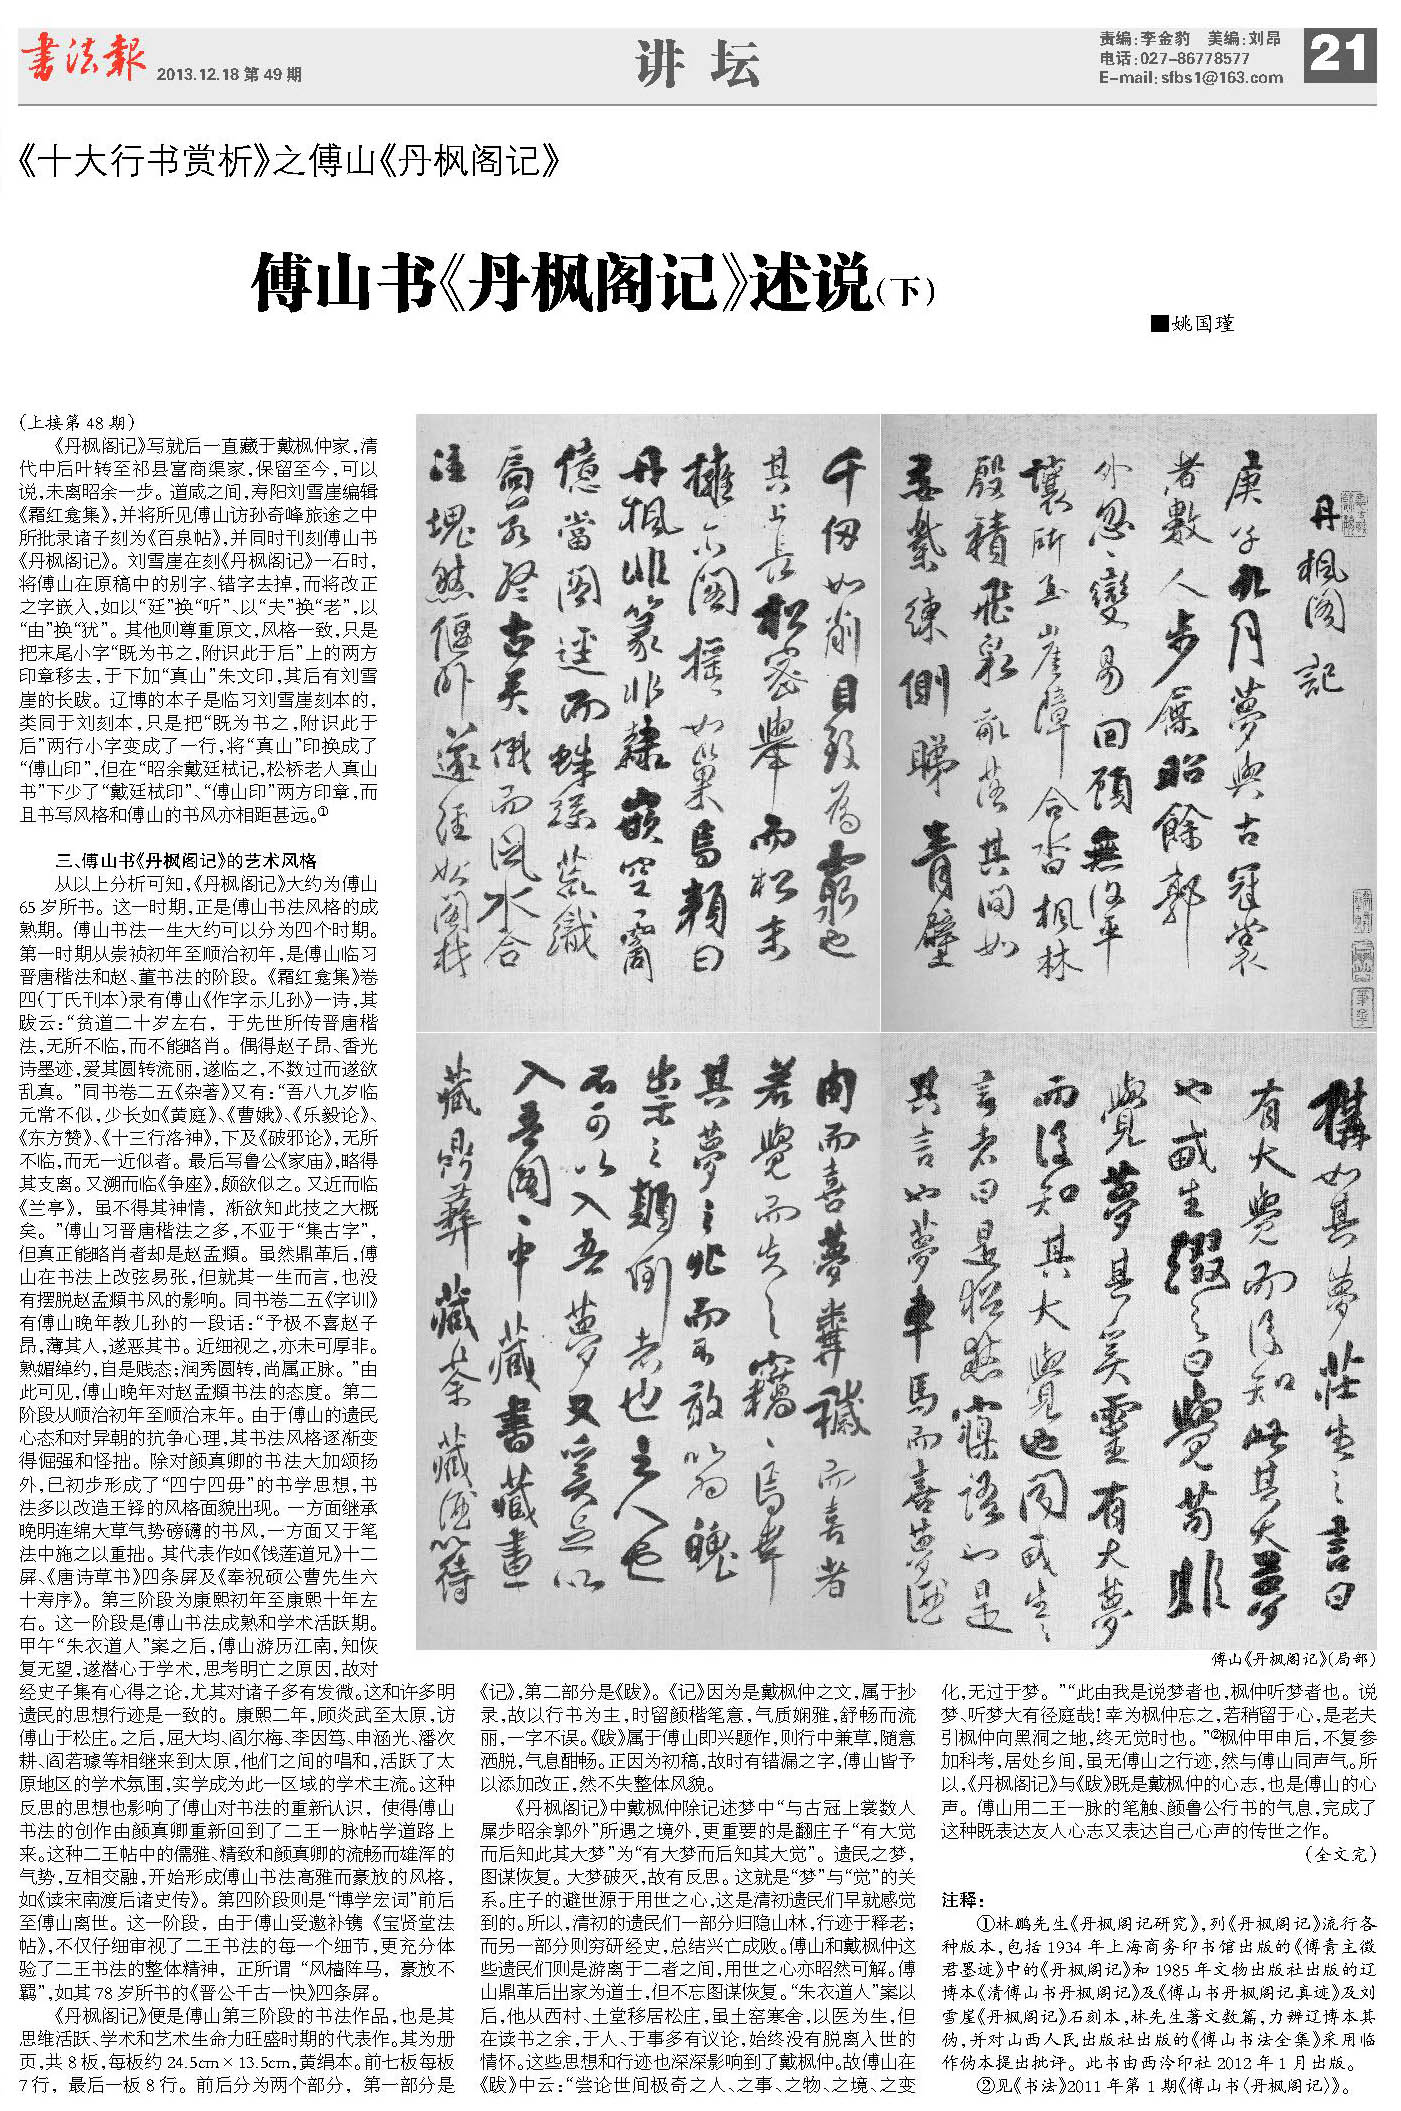 书法报 2013.12.18 第49期
讲 坛
责编:李金豹 美编:刘昂
电话:027-86778577
E-mail:sfbs1@163.com
21
《十大行书赏析》之傅山《丹枫阁记》
傅山书《丹枫阁记》述说(下)
■姚国瑾
(上接第48期)
《丹枫阁记》写就后一直藏于戴枫仲家,清
代中后叶转至祁县富商渠家,保留至今,可以
说,未离昭余一步。道咸之间,寿阳刘雪崖编辑
《霜红龛集》,并将所见傅山访孙奇峰旅途之中
所批录诸子刻为《百泉帖》,并同时刊刻傅山书
《丹枫阁记》。刘雪崖在刻《丹枫阁记》一石时,
将傅山在原稿中的别字、错字去掉,而将改正
之字嵌入,如以“廷”换“听”、以“夫”换“老”,以
“由”换“犹”。其他则尊重原文,风格一致,只是
把末尾小字“既为书之,附识此于后”上的两方
印章移去,于下加“真山”朱文印,其后有刘雪
崖的长跋。辽博的本子是临习刘雪崖刻本的,
类同于刘刻本,只是把“既为书之,附识此于
后”两行小字变成了一行,将“真山”印换成了
“傅山印”,但在“昭余戴廷栻记,松桥老人真山
书”下少了“戴廷栻印”、“傅山印”两方印章,而
且书写风格和傅山的书风亦相距甚远。①
三、傅山书《丹枫阁记》的艺术风格
从以上分析可知,《丹枫阁记》大约为傅山
65岁所书。这一时期,正是傅山书法风格的成
熟期。傅山书法一生大约可以分为四个时期。
第一时期从崇祯初年至顺治初年,是傅山临习
晋唐楷法和赵、董书法的阶段。《霜红龛集》卷
四(丁氏刊本)录有傅山《作字示儿孙》一诗,其
跋云:“贫道二十岁左右,于先世所传晋唐楷
法,无所不临,而不能略肖。偶得赵子昂、香光
诗墨迹,爱其圆转流丽,遂临之,不数过而遂欲
乱真。”同书卷二五《杂著》又有:“吾八九岁临
元常不似,少长如《黄庭》、《曹娥》、《乐毅论》、
《东方赞》、《十三行洛神》,下及《破邪论》,无所
不临,而无一近似者。最后写鲁公《家庙》,略得
其支离。又溯而临《争座》,颇欲似之。又近而临
《兰亭》,虽不得其神情,渐欲知此技之大概
矣。”傅山习晋唐楷法之多,不亚于“集古字”,
但真正能略肖者却是赵孟頫。虽然鼎革后,傅
山在书法上改弦易张,但就其一生而言,也没
有摆脱赵孟頫书风的影响。同书卷二五《字训》
有傅山晚年教儿孙的一段话:“予极不喜赵子
昂,薄其人,遂恶其书。近细视之,亦未可厚非。
熟媚绰约,自是贱态;润秀圆转,尚属正脉。”由
此可见,傅山晚年对赵孟頫书法的态度。第二
阶段从顺治初年至顺治末年。由于傅山的遗民
心态和对异朝的抗争心理,其书法风格逐渐变
得倔强和怪拙。除对颜真卿的书法大加颂扬
外,已初步形成了“四宁四毋”的书学思想,书
法多以改造王铎的风格面貌出现。一方面继承
晚明连绵大草气势磅礴的书风,一方面又于笔
法中施之以重拙。其代表作如《饯莲道兄》十二
屏、《唐诗草书》四条屏及《奉祝硕公曹先生六
十寿序》。第三阶段为康熙初年至康熙十年左
右。这一阶段是傅山书法成熟和学术活跃期。
甲午“朱衣道人”案之后,傅山游历江南,知恢
复无望,遂潜心于学术,思考明亡之原因,故对
经史子集有心得之论,尤其对诸子多有发微。这和许多明
遗民的思想行迹是一致的。康熙二年,顾炎武至太原,访
傅山于松庄。之后,屈大均、阎尔梅、李因笃、申涵光、潘次
耕、阎若璩等相继来到太原,他们之间的唱和,活跃了太
原地区的学术氛围,实学成为此一区域的学术主流。这种
反思的思想也影响了傅山对书法的重新认识,使得傅山
书法的创作由颜真卿重新回到了二王一脉帖学道路上
来。这种二王帖中的儒雅、精致和颜真卿的流畅而雄浑的
气势,互相交融,开始形成傅山书法高雅而豪放的风格,
如《读宋南渡后诸史传》。第四阶段则是“博学宏词”前后
至傅山离世。这一阶段,由于傅山受邀补镌《宝贤堂法
帖》,不仅仔细审视了二王书法的每一个细节,更充分体
验了二王书法的整体精神,正所谓“风樯阵马,豪放不
羁”,如其78岁所书的《晋公千古一快》四条屏。
《丹枫阁记》便是傅山第三阶段的书法作品,也是其
思维活跃、学术和艺术生命力旺盛时期的代表作。其为册
页,共8板,每板约24.5cm×13.5cm,黄绢本。前七板每板
7行,最后一板8行。前后分为两个部分,第一部分是
丹楓閣記
庚子九月夢與古冠裳
者數人步屧昭餘郭
外忽〻變易回顧無復平
壤所至山崖障合沓楓林
殷積飛泉亂落其間如
委紫練側睇青壁
千仞如削目致為窮也
其上長松密舉而松末
擁一閣搖〻如巢烏額曰
丹楓非篆非隸嵌空霱
億當閣逕而蛛羅蒙織
扃若啓古矣俄而風水合
注塊然偃卧遂經如閣材
構如其夢莊生之書曰
有大覺而後知此其大夢
也戴生綴之曰覺苟非
覺夢其矣靈有大夢
而後知其大覺也聞戴生之
言者曰是猶然寐語也是
其言也夢車馬而喜夢酒
肉而喜夢糞穢而喜者
若覺而失之竊〻焉幸
其夢之非而不敢以為魄
祟之顛倒者也主人也
不可以入吾夢又奚足以
入吾閣〻中藏書藏畫
藏鼎彝藏茶藏酒以待
傅山《丹枫阁记》(局部)
《记》,第二部分是《跋》。《记》因为是戴枫仲之文,属于抄
录,故以行书为主,时留颜楷笔意,气质娴雅,舒畅而流
丽,一字不误。《跋》属于傅山即兴题作,则行中兼草,随意
洒脱,气息酣畅。正因为初稿,故时有错漏之字,傅山皆予
以添加改正,然不失整体风貌。
《丹枫阁记》中戴枫仲除记述梦中“与古冠上裳数人
屧步昭余郭外”所遇之境外,更重要的是翻庄子“有大觉
而后知此其大梦”为“有大梦而后知其大觉”。遗民之梦,
图谋恢复。大梦破灭,故有反思。这就是“梦”与“觉”的关
系。庄子的避世源于用世之心,这是清初遗民们早就感觉
到的。所以,清初的遗民们一部分归隐山林,行迹于释老;
而另一部分则穷研经史,总结兴亡成败。傅山和戴枫仲这
些遗民们则是游离于二者之间,用世之心亦昭然可解。傅
山鼎革后出家为道士,但不忘图谋恢复。“朱衣道人”案以
后,他从西村、土堂移居松庄,虽土窑寒舍,以医为生,但
在读书之余,于人、于事多有议论,始终没有脱离入世的
情怀。这些思想和行迹也深深影响到了戴枫仲。故傅山在
《跋》中云:“尝论世间极奇之人、之事、之物、之境、之变
化,无过于梦。”“此由我是说梦者也,枫仲听梦者也。说
梦、听梦大有径庭哉!幸为枫仲忘之,若稍留于心,是老夫
引枫仲向黑洞之地,终无觉时也。”②枫仲甲申后,不复参
加科考,居处乡间,虽无傅山之行迹,然与傅山同声气。所
以,《丹枫阁记》与《跋》既是戴枫仲的心志,也是傅山的心
声。傅山用二王一脉的笔触、颜鲁公行书的气息,完成了
这种既表达友人心志又表达自己心声的传世之作。
(全文完)
注释:
①林鹏先生《丹枫阁记研究》,列《丹枫阁记》流行各
种版本,包括1934年上海商务印书馆出版的《傅青主徵
君墨迹》中的《丹枫阁记》和1985年文物出版社出版的辽
博本《清傅山书丹枫阁记》及《傅山书丹枫阁记真迹》及刘
雪崖《丹枫阁记》石刻本,林先生著文数篇,力辨辽博本其
伪,并对山西人民出版社出版的《傅山书法全集》采用临
作伪本提出批评。此书由西泠印社2012年1月出版。
②见《书法》2011年第1期《傅山书〈丹枫阁记〉》。